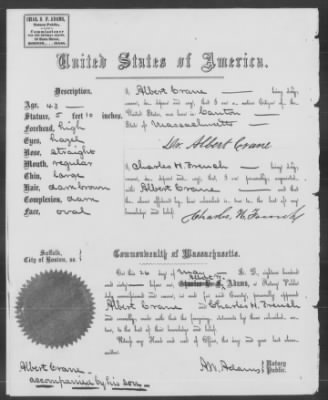 CHAS. B. F. ADAMS,
Notary Public,
Commissioner
BOSTON, MASS.
United States of America.
Description.
Age, 43
Stature, 5 feet 10 inches.
Forehead, high
Eyes, hazel
Nose, straight
Mouth, regular
Chin, large
Hair, dark brown
Complexion, dark
Face, oval
I, Albert Crane being duly
sworn, do depose and say, that I am a native Citizen of the
United States, was born in Canton
State of Massachusetts
Dr. Albert Crane
I, Charles H. French being duly
sworn, do depose and say, that I am personally acquainted
with Albert Crane and that
the above affidavit by him subscribed is true to the best of my
knowledge and belief.
Charles H. French
Suffolk,
City of Boston, ss.
Commonwealth of Massachusetts.
On this 26 day of May A. D. eighteen hundred
and sixty before me, Adams, a Notary Public
duly commissioned and sworn, in and for said County, personally appeared
Albert Crane Charles H. French
to the best of their knowledge and belief.
Witness my Hand and Seal of Office, the day and year last above
written.
Adams Notary Public.
Albert Crane
accompanied by his son